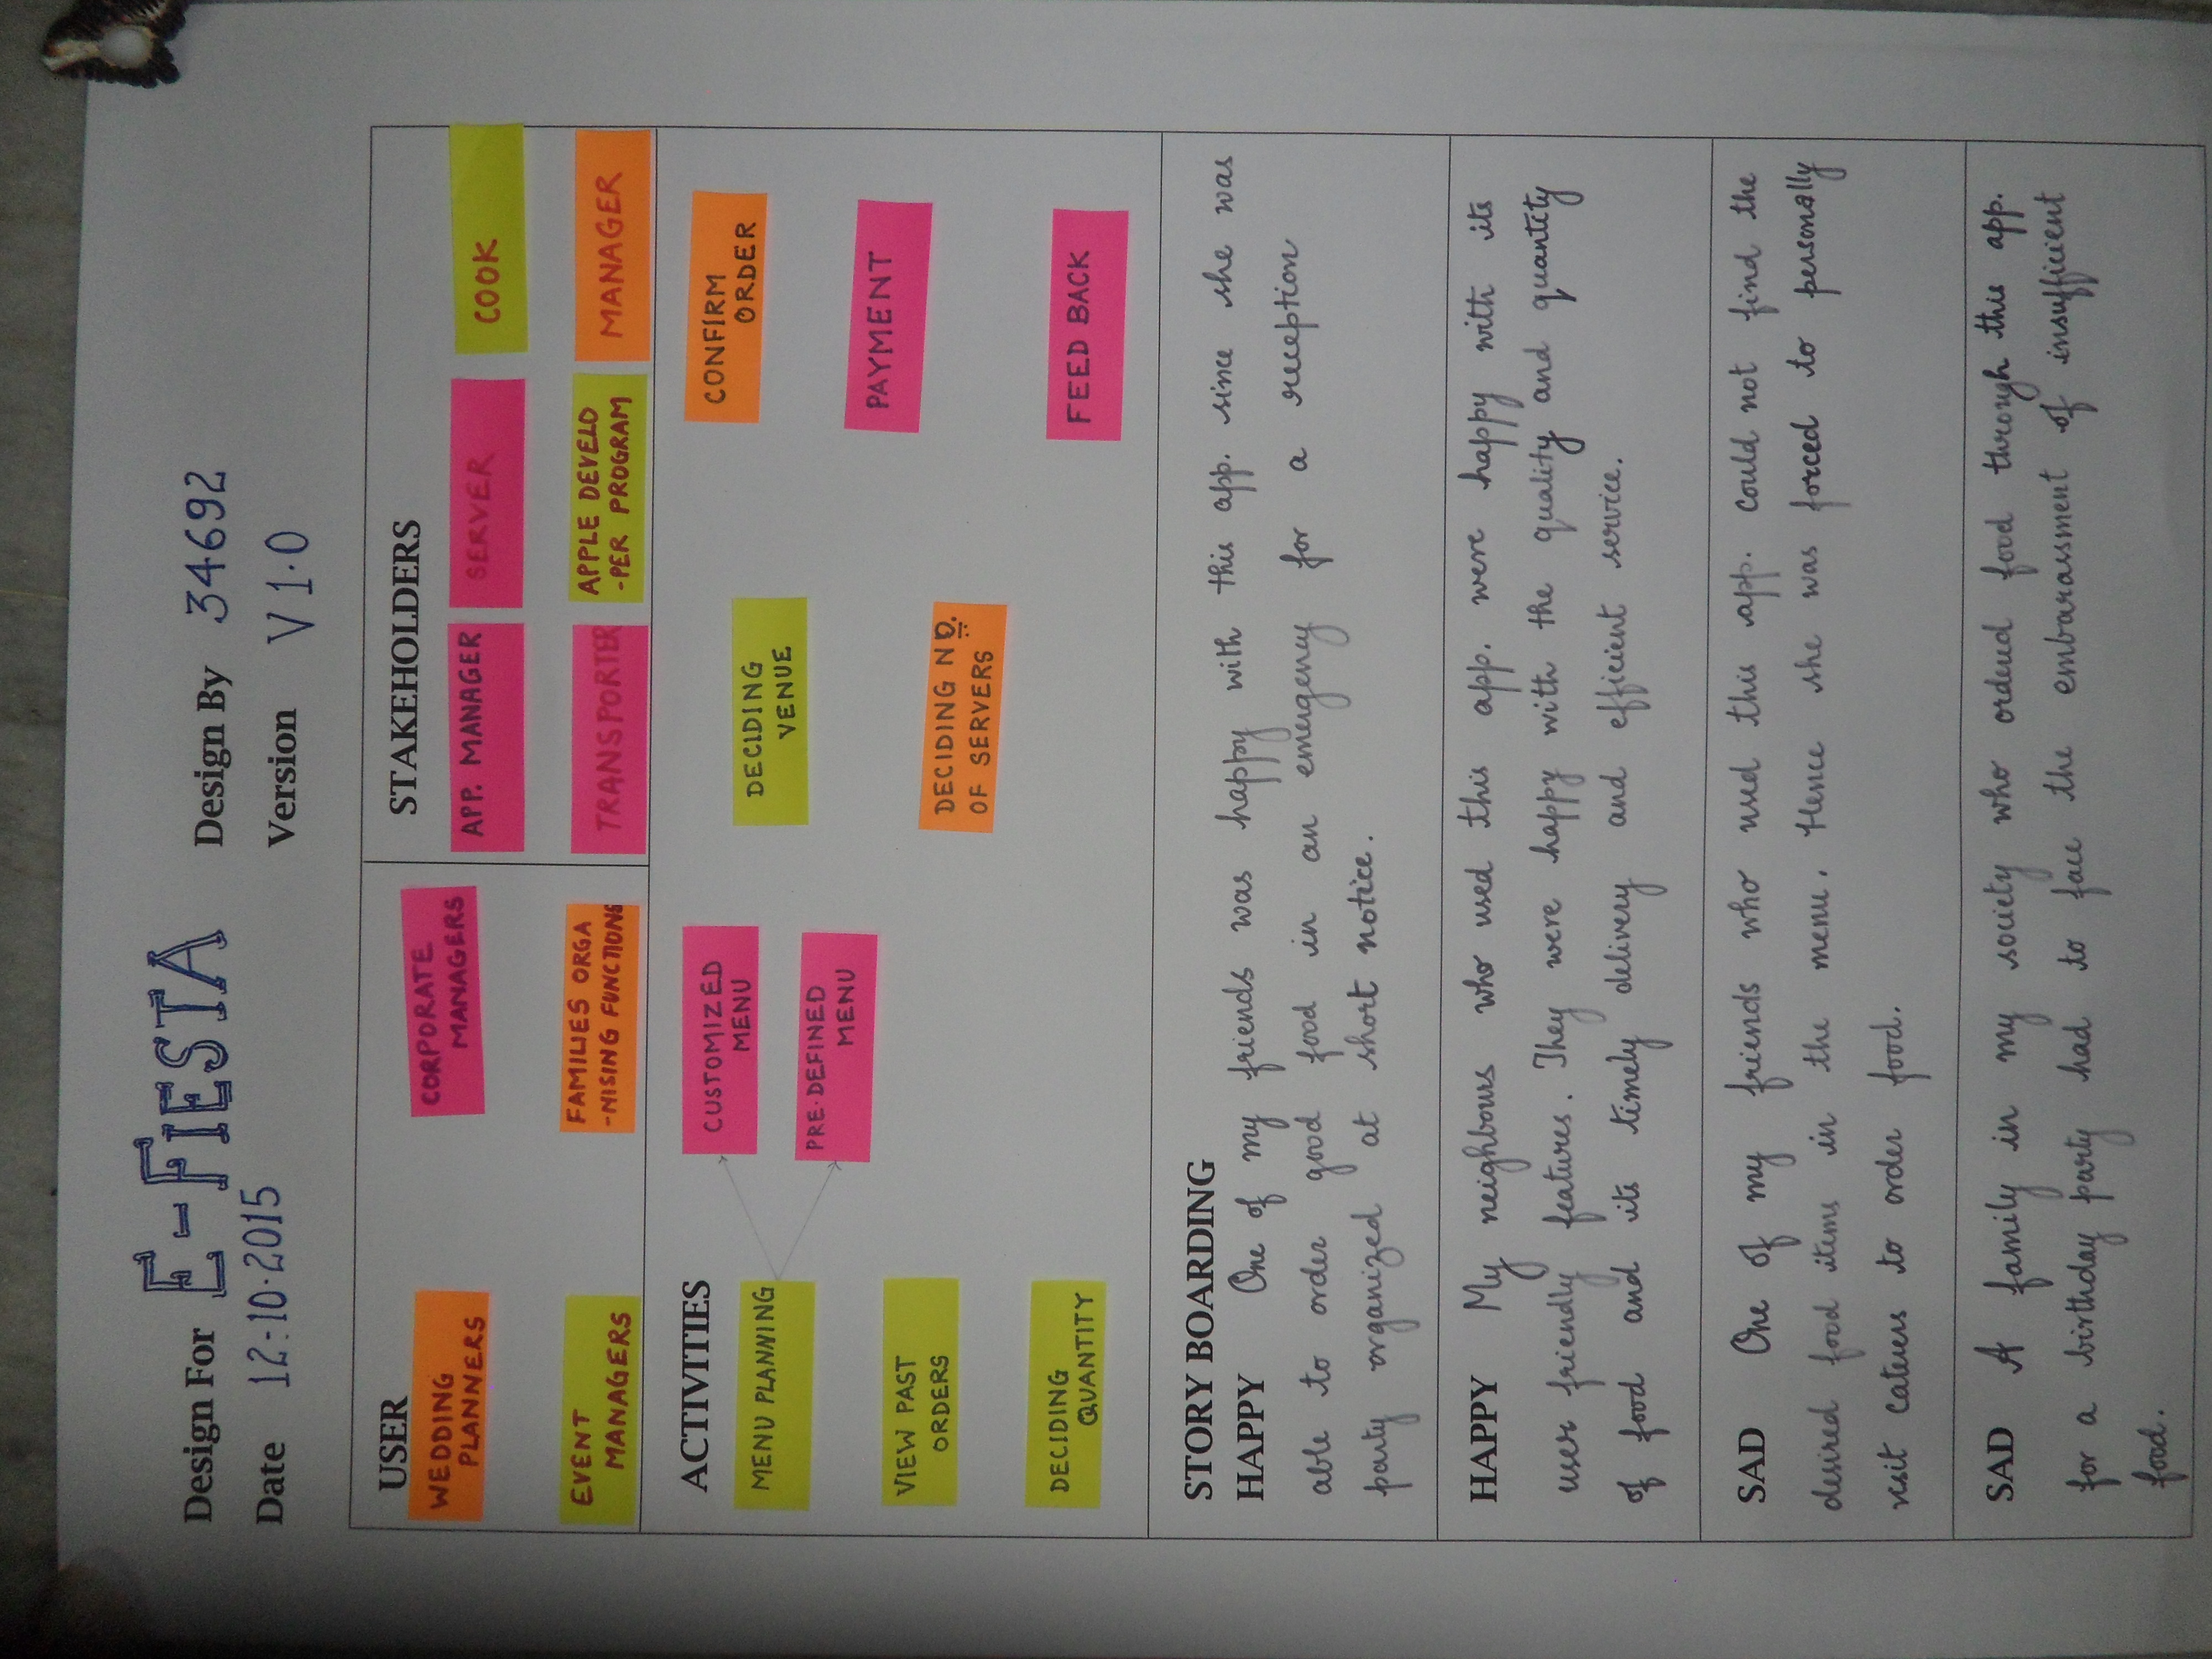 Design For E-FIESTA Design By 34692
Date 12.10.2015 Version V 1.0
USER
WEDDING
PLANNERS
CORPORATE
MANAGERS
EVENT
MANAGERS
FAMILIES ORGA
-NISING FUNCTIONS
STAKEHOLDERS
APP. MANAGER
SERVER
COOK
TRANSPORTER
APPLE DEVELO
-PER PROGRAM
MANAGER
ACTIVITIES
MENU PLANNING
CUSTOMIZED
MENU
PRE-DEFINED
MENU
DECIDING
VENUE
CONFIRM
ORDER
VIEW PAST
ORDERS
PAYMENT
DECIDING
QUANTITY
DECIDING NO.
OF SERVERS
FEED BACK
STORY BOARDING
HAPPY One of my friends was happy with this app. since she was
able to order good food in an emergency for a reception
party organized at short notice.
HAPPY My neighbours who used this app. were happy with its
user friendly features. They were happy with the quality and quantity
of food and its timely delivery and efficient service.
SAD One of my friends who used this app. could not find the
desired food items in the menu. Hence she was forced to personally
visit caterers to order food.
SAD A family in my society who ordered food through this app.
for a birthday party had to face the embarassment of insufficient
food.